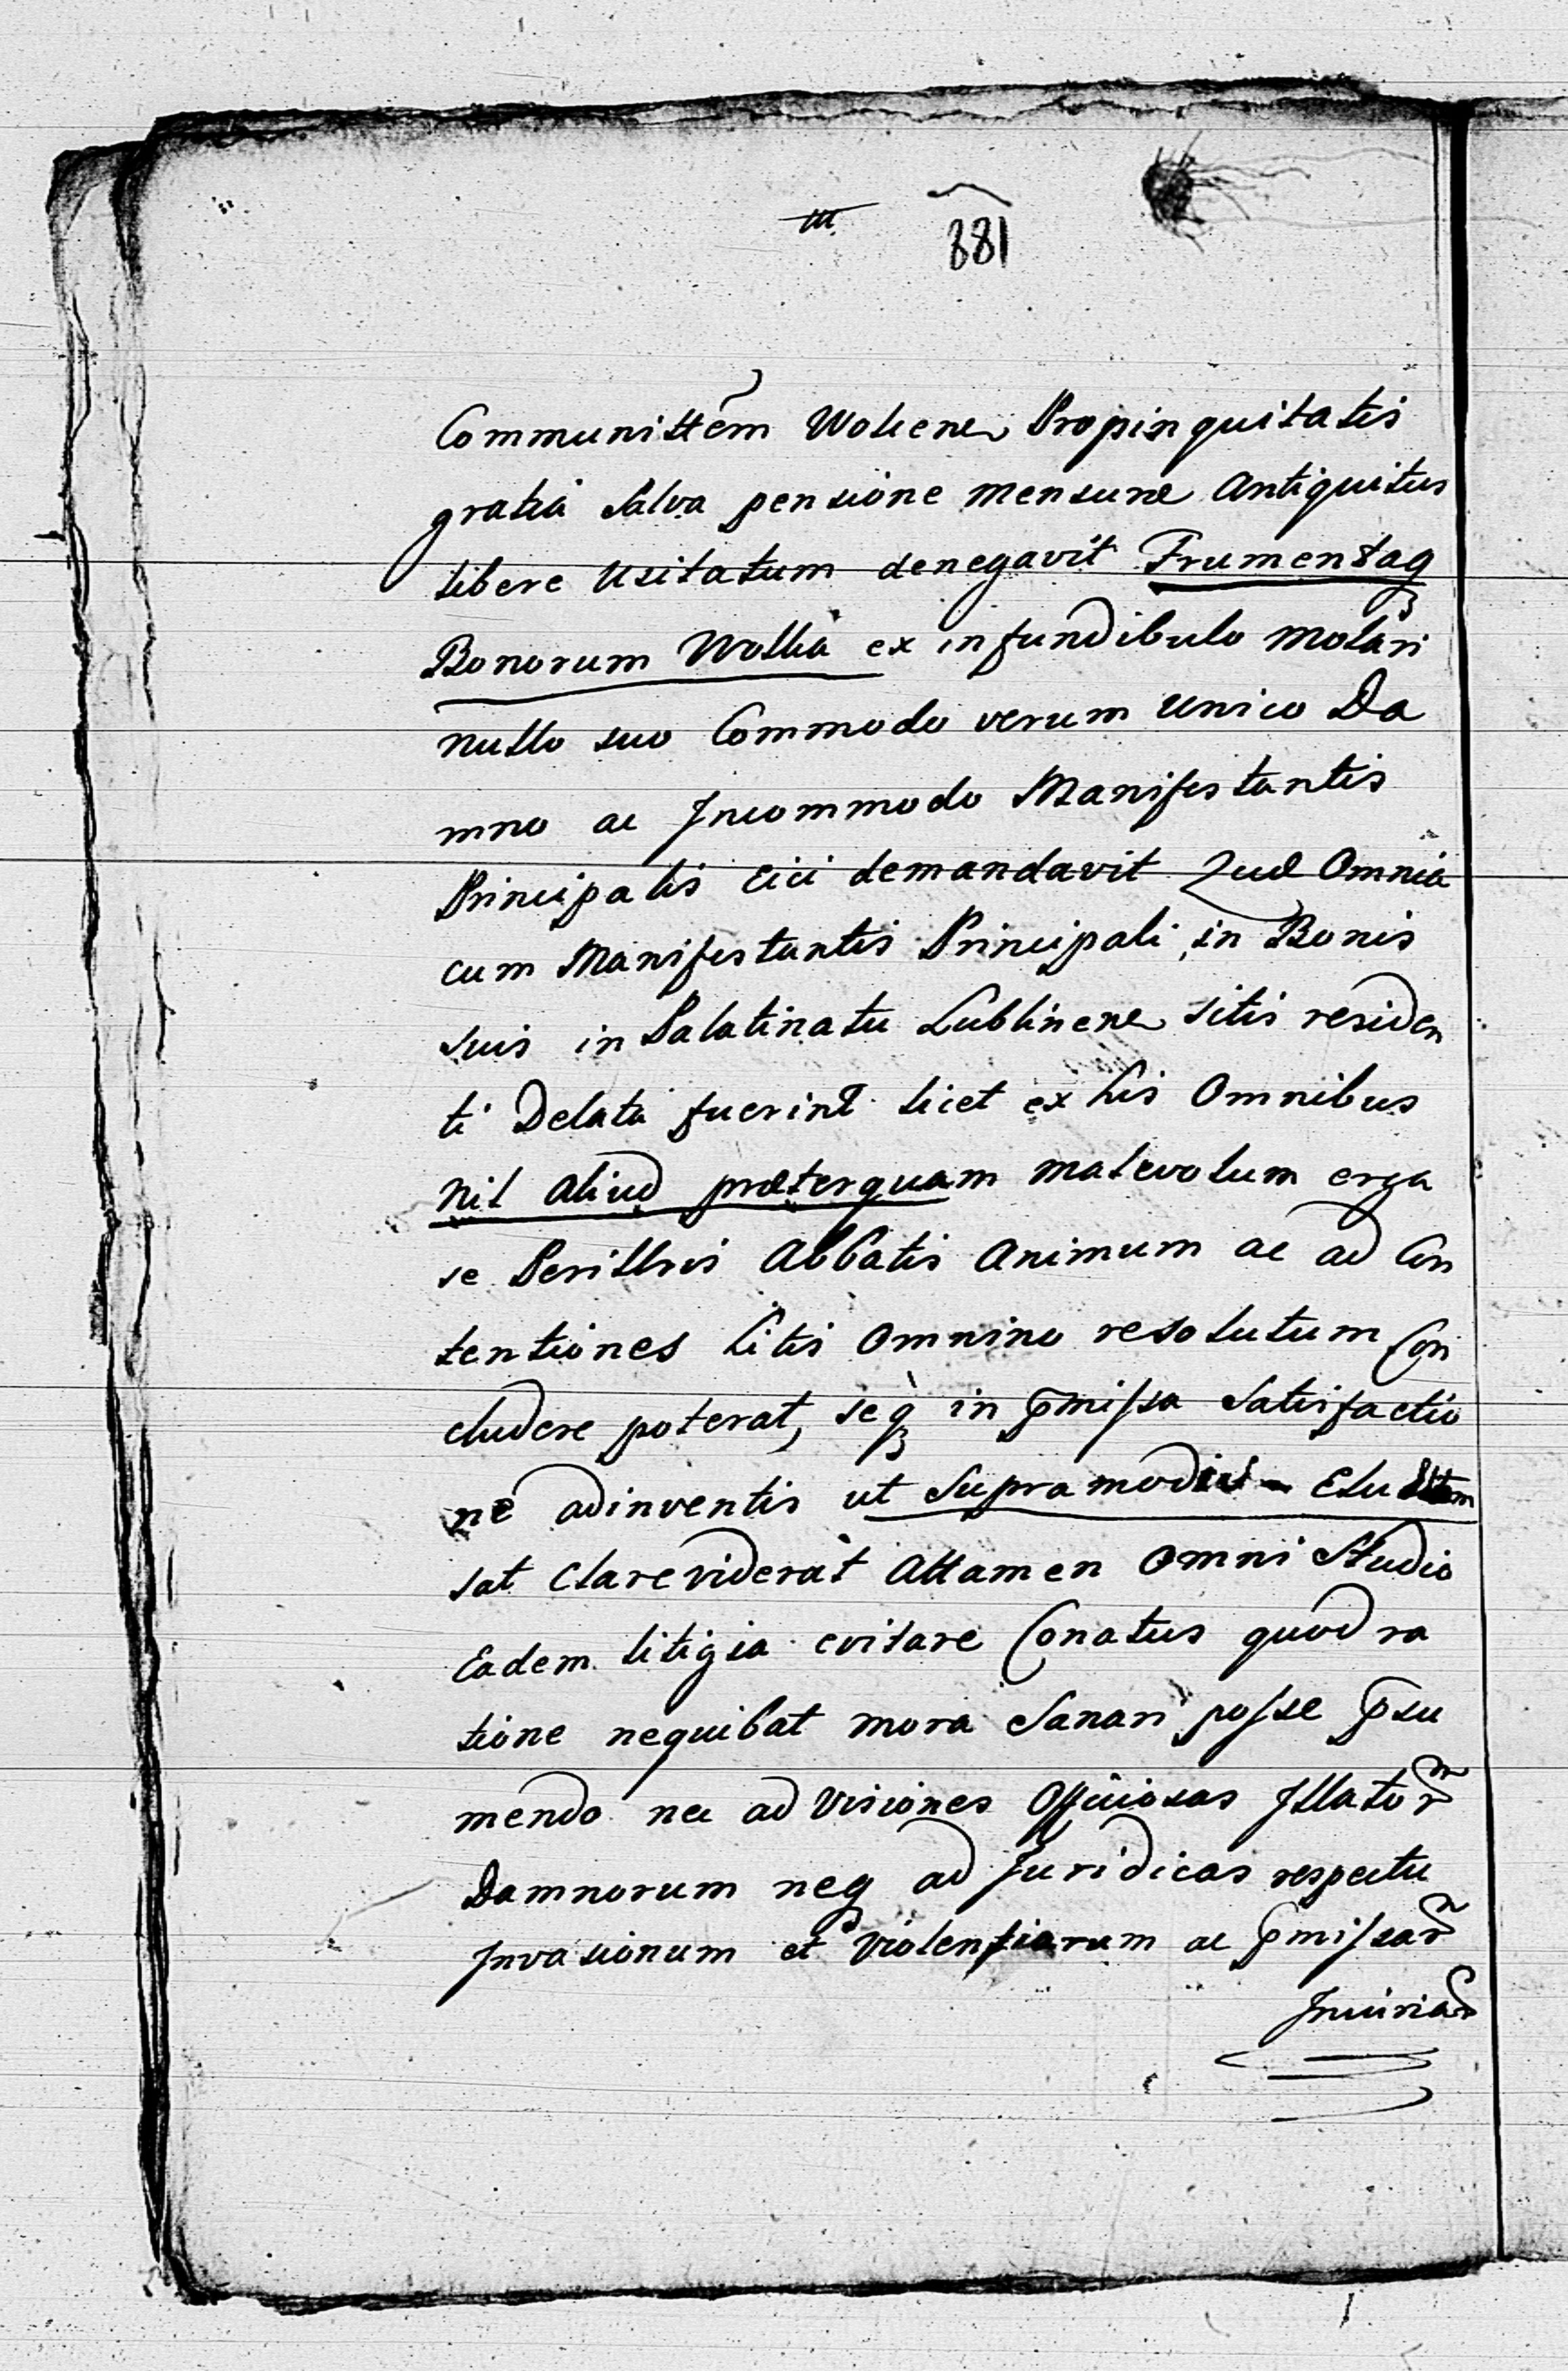 881
Communittēm Woliene Propinquitatis
gratia Salva pensione mensuræ Antiquitus
libere Usitatum denegavit Frumentaq
Bonorum Wolka ex infundibulo molari
nullo suo Commodo verum unico Da
mno ac Incommodo Manifestantis
Principalis eici demandavit Quæ Omnia
cum Manifestantis Principali, in Bonis
suis in Palatinatu Lublinene sitis residen
ti Delata fuerint licet ex his Omnibus
nil aliud præterquam malevolum erga
se Perillris Abbatis Animum ac ad Con
tentiones Litis Omnino resolutum Con
cludere poterat, seq in p̄missa Satisfactio
ne adinventis ut Supra modis - Elusum
sat Clare viderat Attamen Omni Studio
Eadem litigia evitare Conatus quod ra
tione nequibat mora Sanari posse p̄su
mendo nec ad Visiones Officiosas Illator
Damnorum neq ad Juridicas respectu
Invasionum et Violentiarum ac p̄missar
Iniuriar